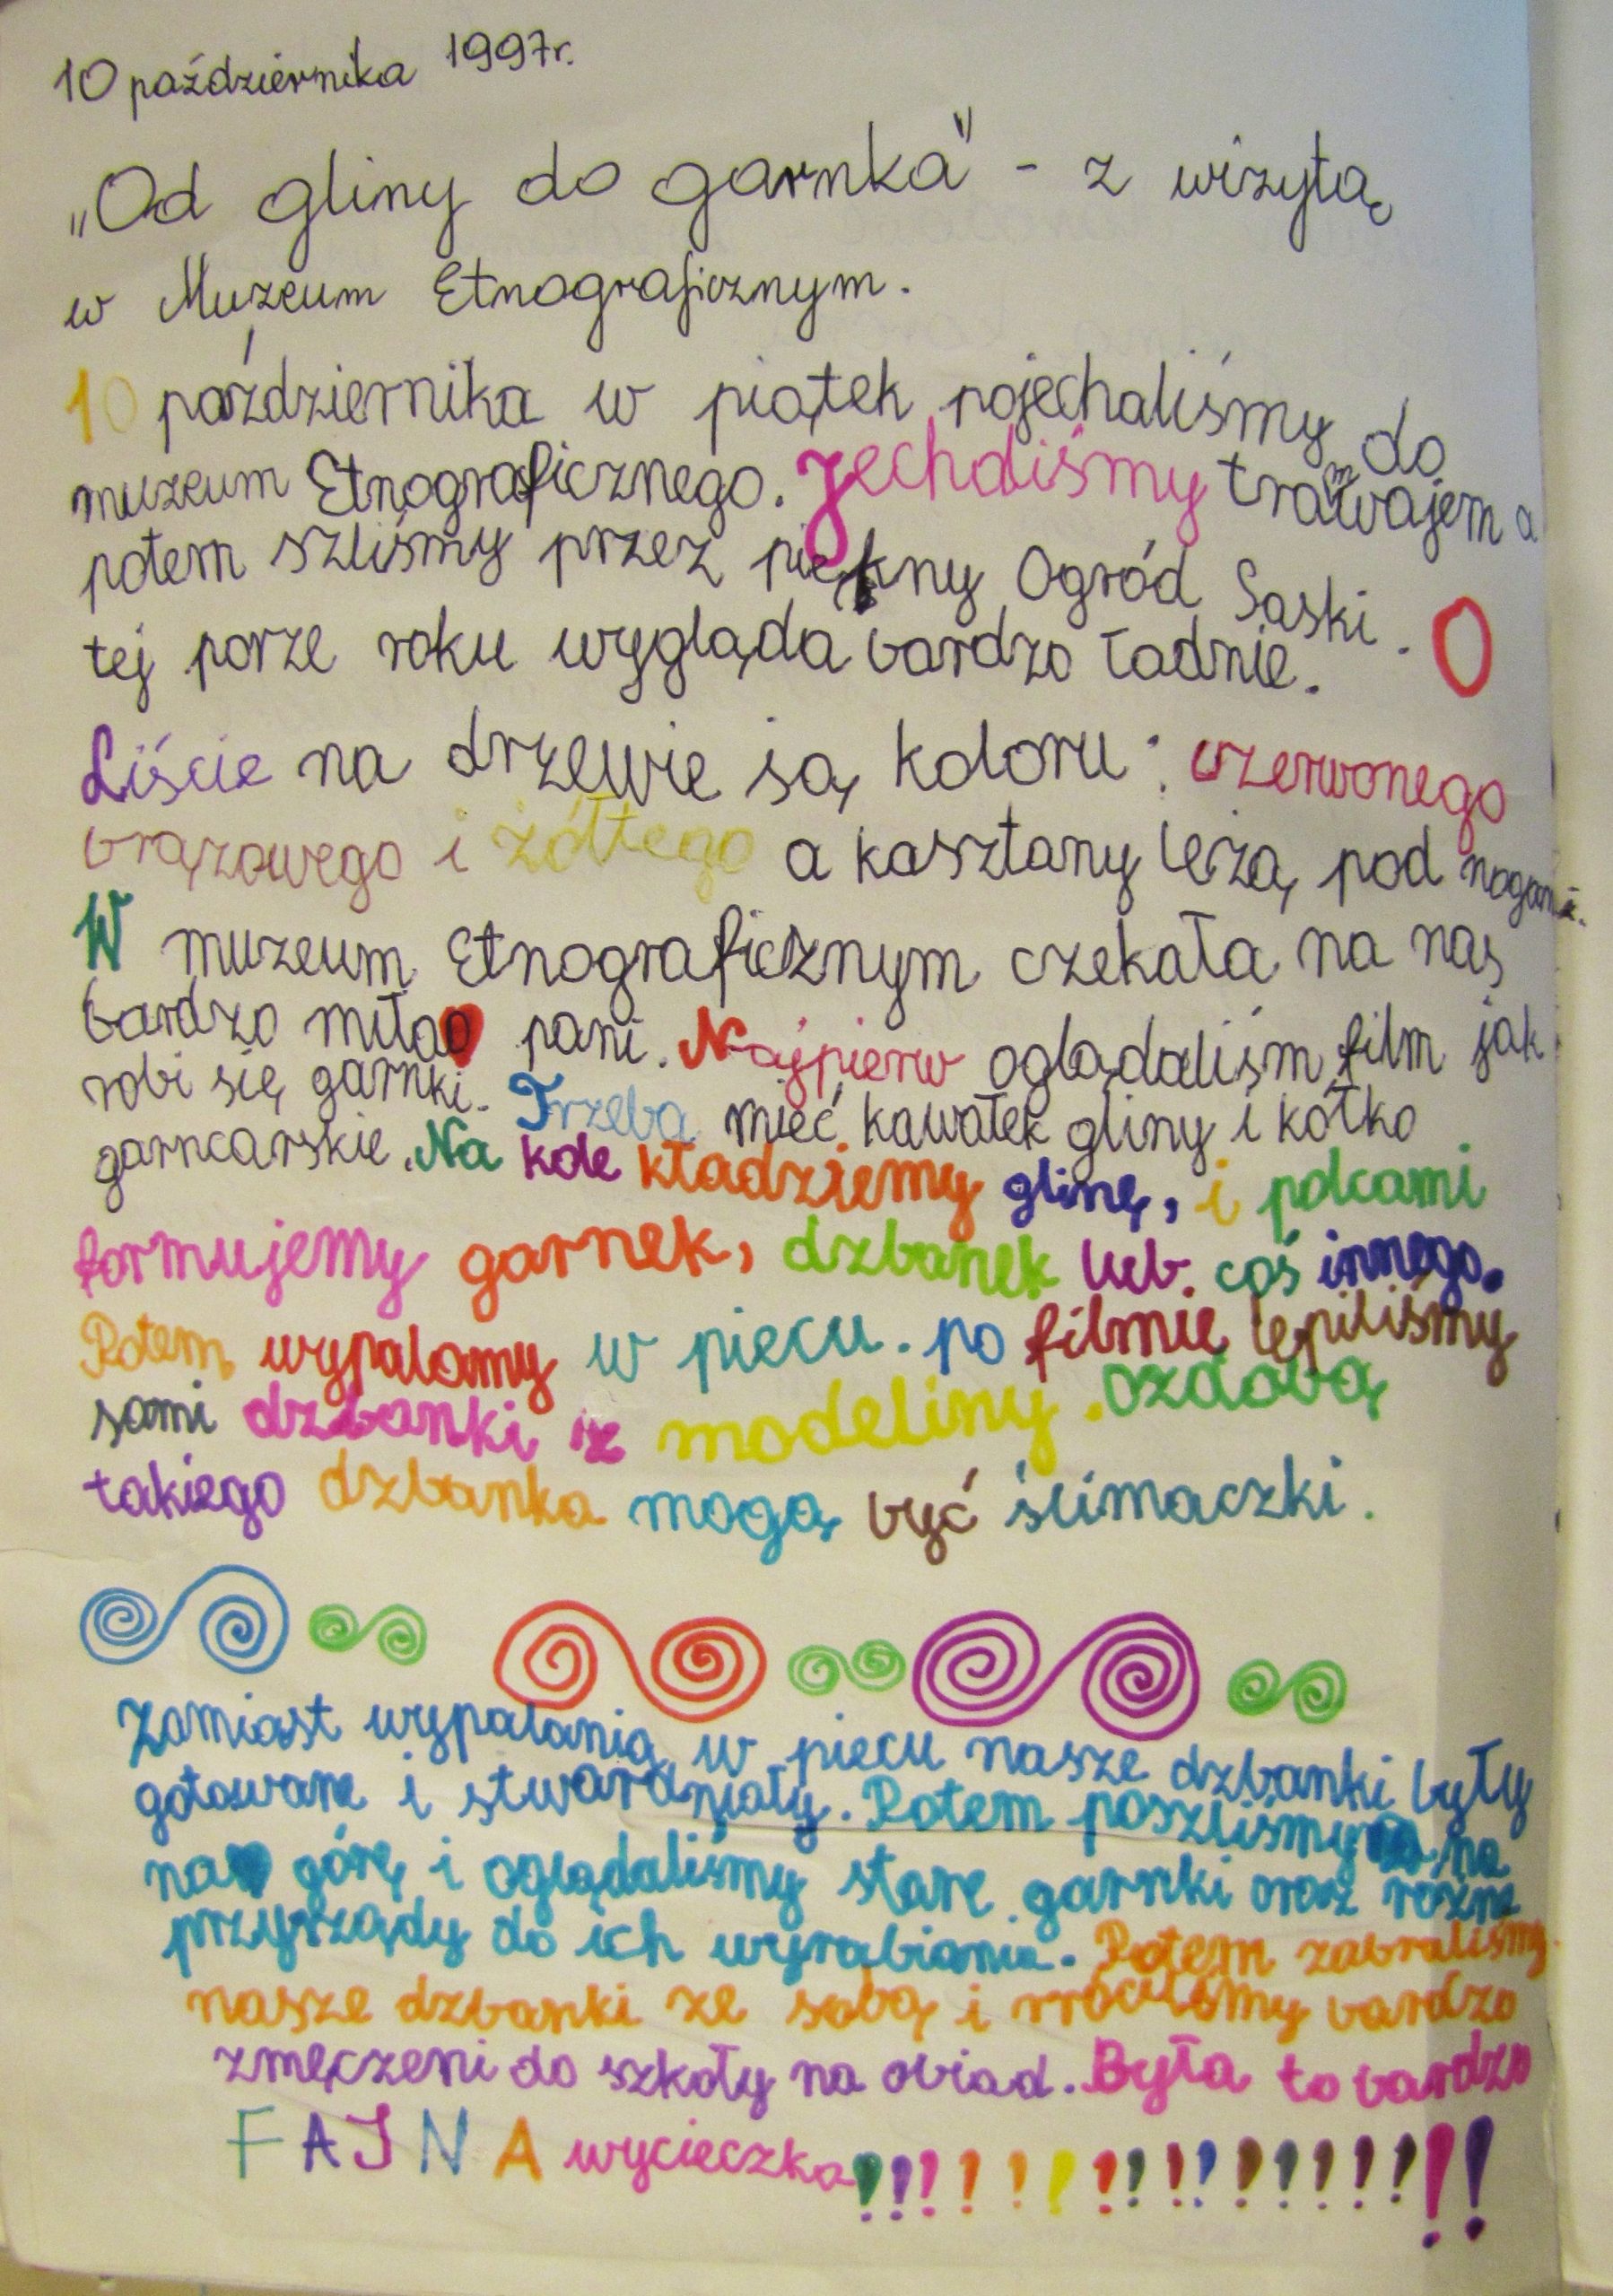 10 października 1997r.
„Od gliny do garnka" - z wizytą
w Muzeum Etnograficznym.
10 października w piątek pojechaliśmy do
muzeum Etnograficznego. Jechaliśmy tramwajem a
potem szliśmy przez piękny Ogród Saski. O
tej porze roku wygląda bardzo ładnie.
Liście na drzewie są koloru: czerwonego
brązowego i żółtego a kasztany leżą pod nogami.
W muzeum Etnograficznym czekała na nas
bardzo miła pani. Najpierw oglądaliśm film jak
robi się garnki. Trzeba mieć kawałek gliny i kółko
garncarskie. Na kole kładziemy glinę, i palcami
formujemy garnek, dzbanek lub coś innego.
Potem wypalamy w piecu. po filmie lepiliśmy
sami dzbanki z modeliny. Ozdobą
takiego dzbanka mogą być ślimaczki.
Zamiast wypalania w piecu nasze dzbanki były
gotowane i stwardniały. Potem poszliśmy na
na górę i oglądaliśmy stare garnki oraz różne
przyrządy do ich wyrabiania. Potem zabraliśmy
nasze dzbanki ze sobą i wróciliśmy bardzo
zmęczeni do szkoły na obiad. Była to bardzo
FAJNA wycieczka!!!!!!!!!!!!!!!!!